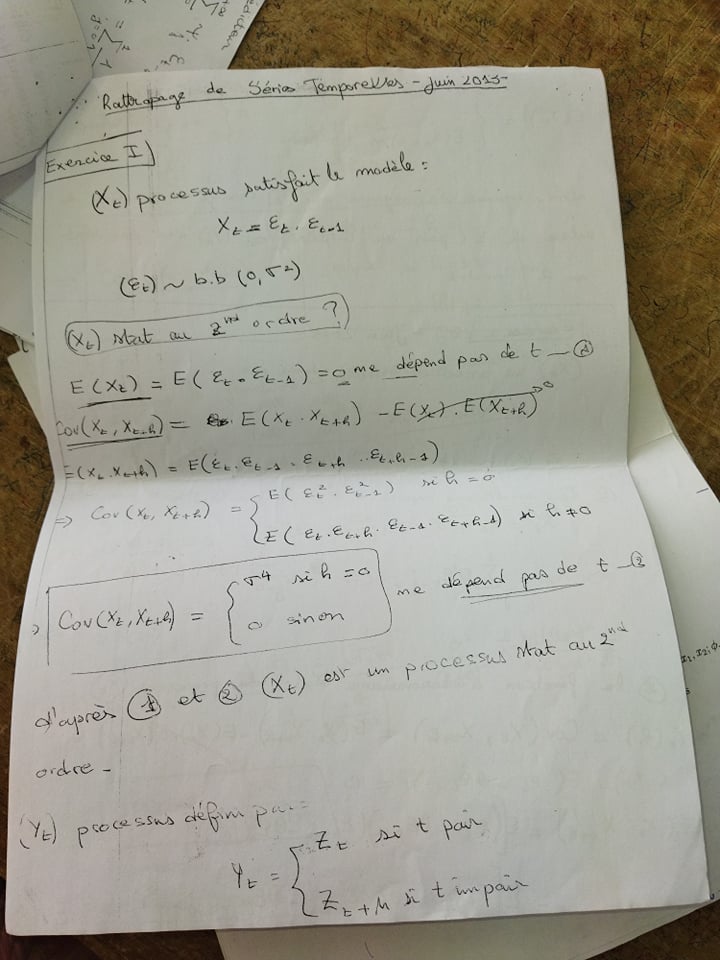 Rattrapage de Séries Temporelles - Juin 2015-
Exercice I)
(X_t) processus satisfait le modèle :
X_t = ε_t . ε_t-1
(ε_t) ~ b.b (0, σ²)
(X_t) stat au 2nd ordre ?
E(X_t) = E( ε_t . ε_t-1) = 0 ne dépend pas de t — ①
Cov(X_t, X_t+h) = E(X_t . X_t+h) - E(X_t) . E(X_t+h) 0
E(X_t . X_t+h) = E(ε_t . ε_t-1 . ε_t+h . ε_t+h-1)
=> Cov(X_t, X_t+h) = { E( ε_t² . ε²_t-1 ) si h = 0
E( ε_t . ε_t+h . ε_t-1 . ε_t+h-1) si h ≠ 0
Cov(X_t, X_t+h) = { σ⁴ si h = 0
0 sinon
ne dépend pas de t — ②
d'après ① et ② (X_t) est un processus stat au 2nd
ordre -
(Y_t) processus défini par :
Y_t = { Z_t si t pair
Z_t+μ si t impair